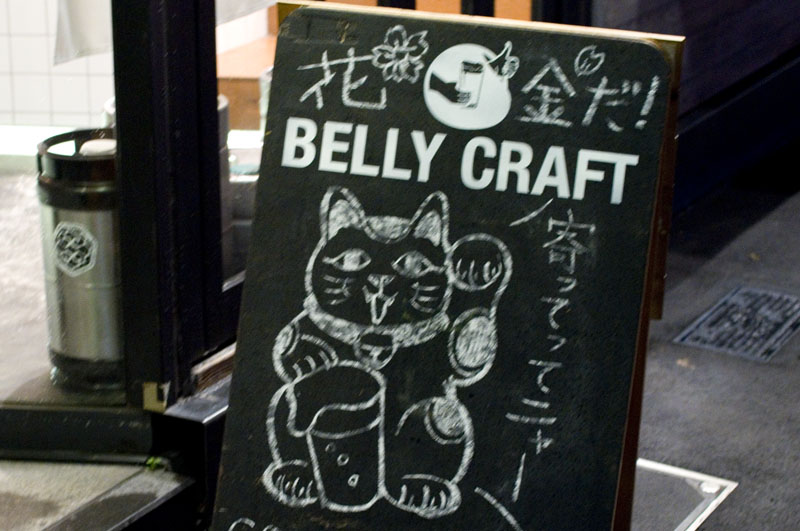 花金だ!
BELLY CRAFT
寄ってってニャー